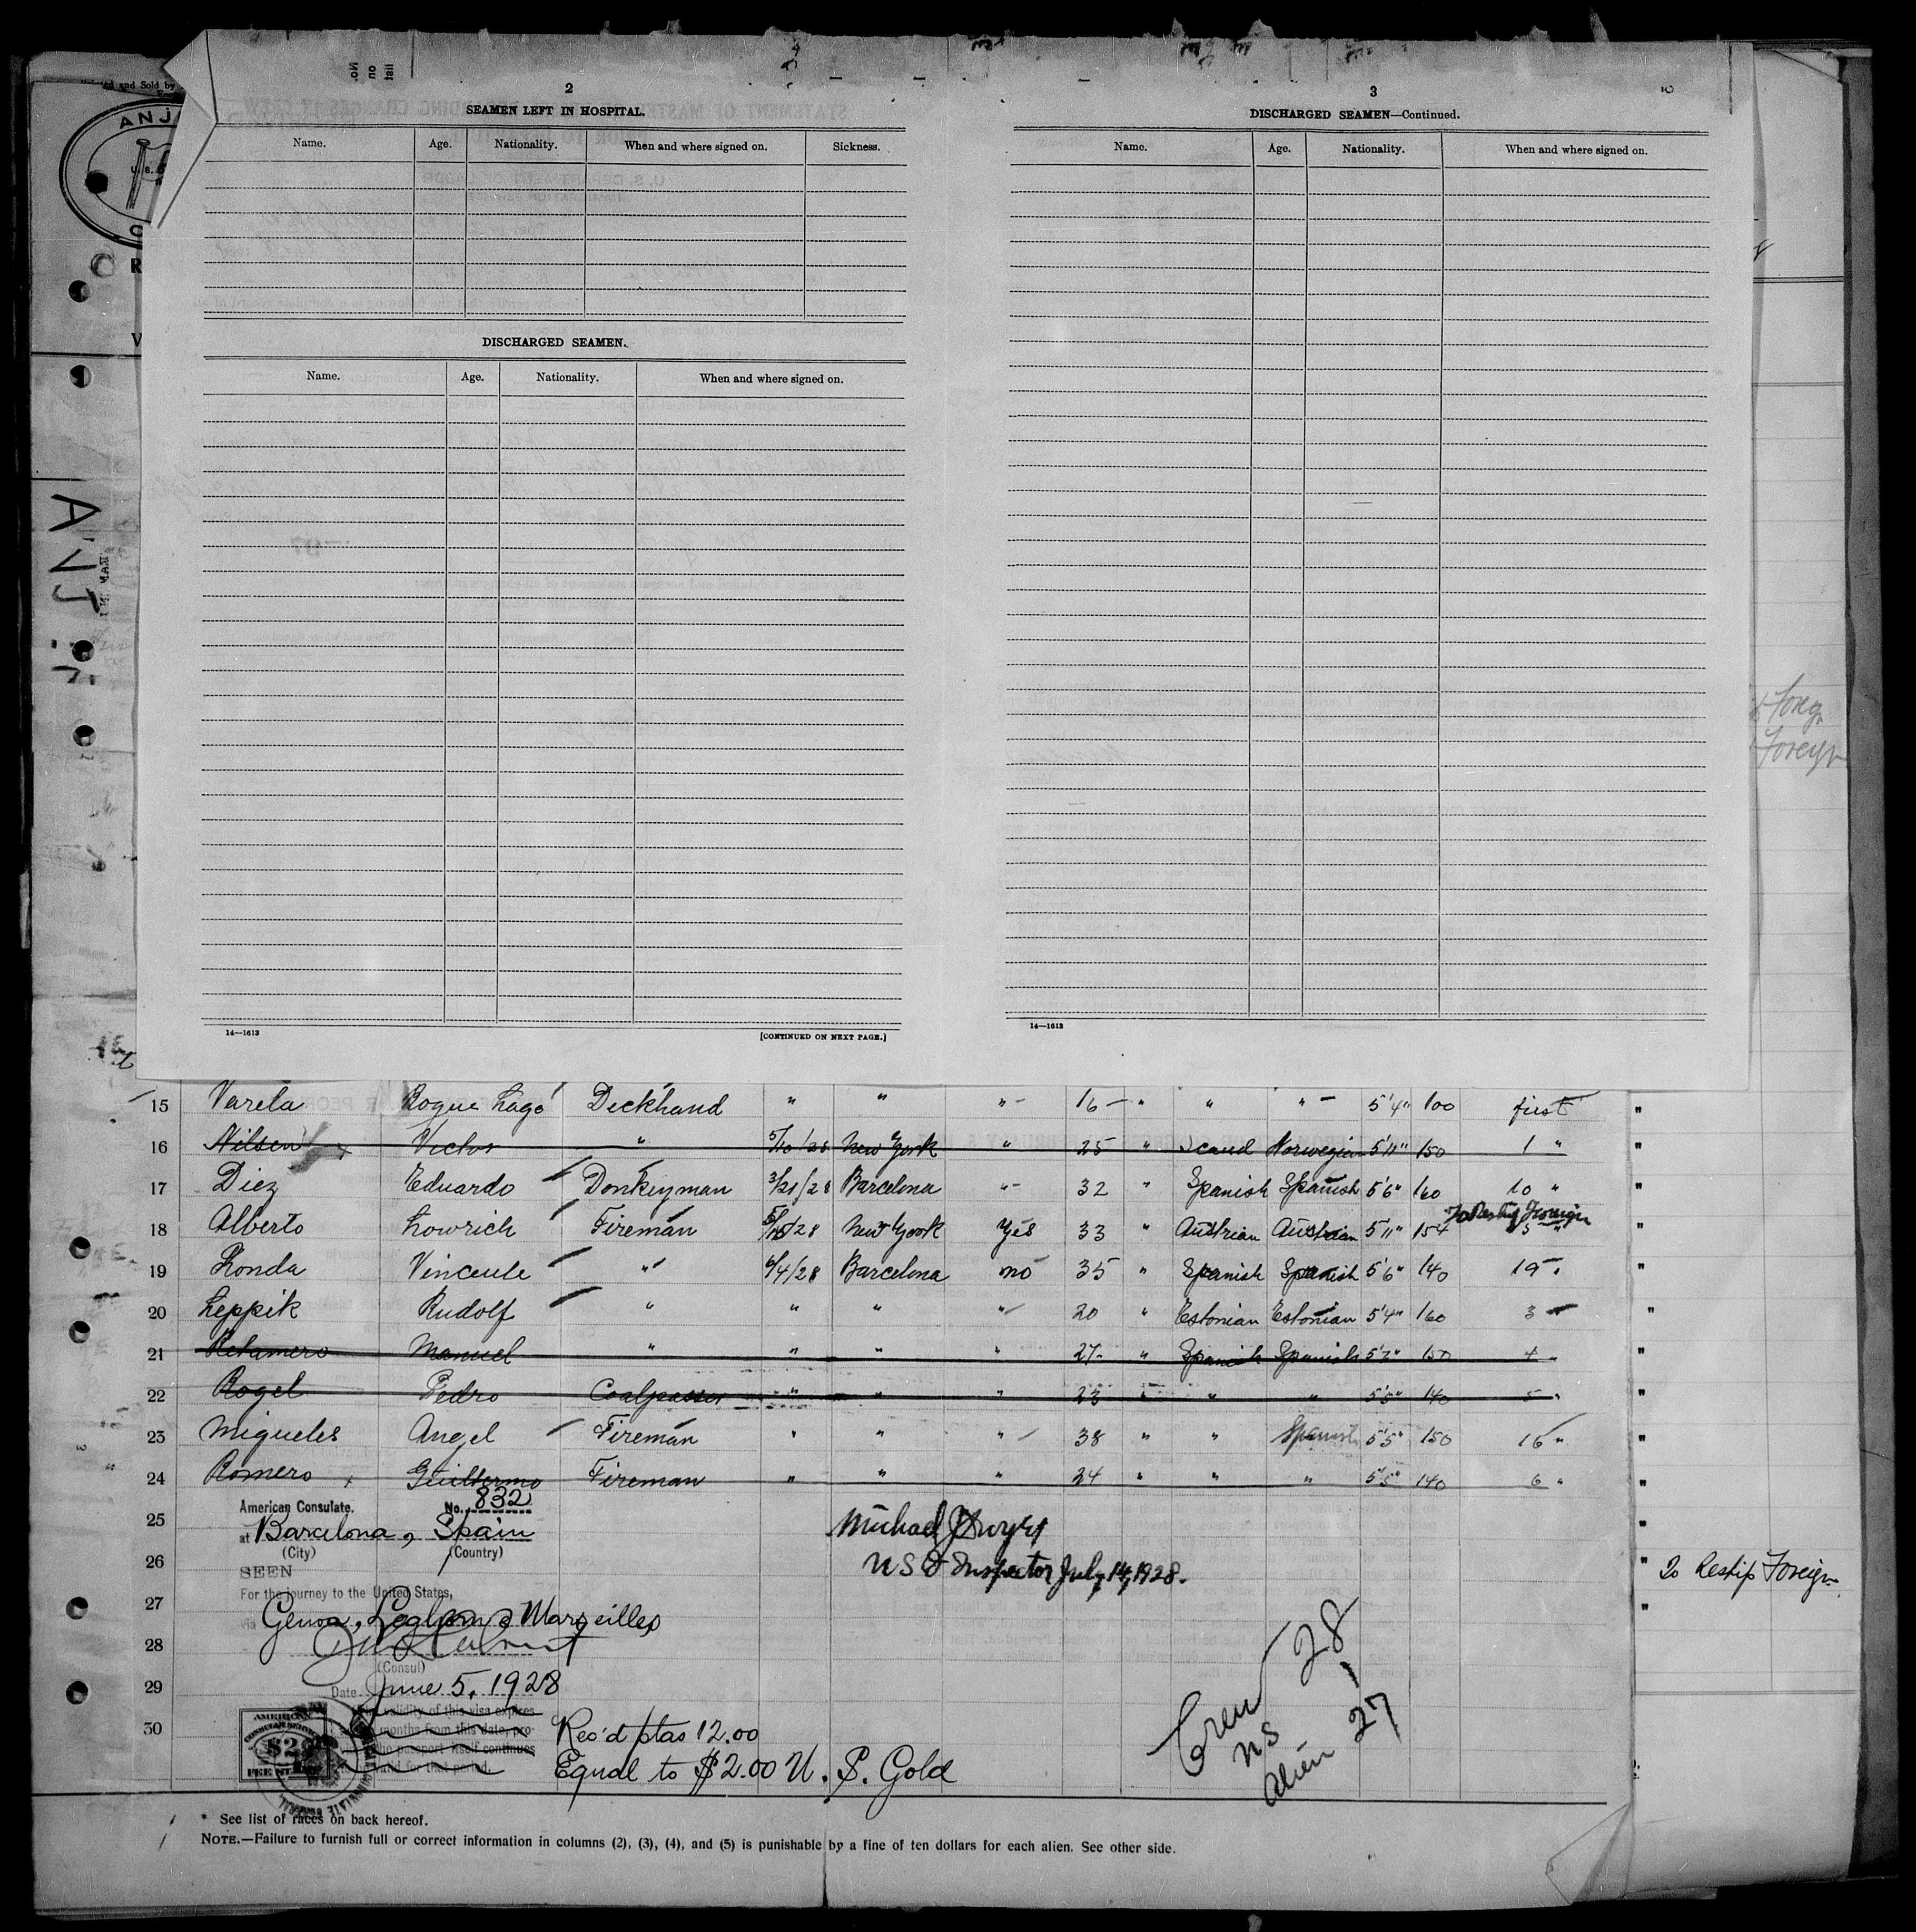 2
SEAMEN LEFT IN HOSPITAL.
Name. Age. Nationality. When and where signed on. Sickness.
DISCHARGED SEAMEN.
Name. Age. Nationality. When and where signed on.
14—1613
[CONTINUED ON NEXT PAGE.]
3
DISCHARGED SEAMEN—Continued.
Name. Age. Nationality. When and where signed on.
14—1613
and Sold by
ANJ
Forg.
Foreign
15 Varela Rogue Lago Deckhand " " " 16 " " " 5'4" 100 first "
16 Nilsen Victor " 5/10/28 New York " 25 " Scand Norwegian 5'11" 150 1 " "
17 Diez Eduardo Donkeyman 3/21/28 Barcelona " 32 " Spanish Spanish 5'6" 160 10 " "
To Reship Foreign
18 Alberto Lowrich Fireman 5/15/28 New York Yes 33 " Austrian Austrian 5'11" 154 "
19 Londa Vincente " 6/4/28 Barcelona no 35 " Spanish Spanish 5'6" 140 19 "
20 Leppik Rudolf " " " " 20 " Estonian Estonian 5'4" 160 3 "
21 Retamero Manuel " " " " 27 " Spanish Spanish 5'7" 150 4 " "
22 Rogel Pedro Coalpasser " " " 23 " " " 5'5" 140 5 " "
23 Migueles Angel Fireman " " " 38 " " Spanish 5'5" 150 16 " "
24 Romero Guillermo Fireman " " " 24 " " " 5'5" 140 6 " "
American Consulate. No. 832
25 at Barcelona, Spain Michael J Dwyer "
(City) (Country)
26 SEEN U S I Inspector July 14, 1928. " To Reship Foreign
For the journey to the United States,
27 via Genoa, Leghorn & Marseilles "
28
(Consul)
29 Date June 5, 1928
validity of this visa expires
months from this date, pro-
the passport itself continues
valid for that period.
30 Rec'd ptas 12.00
Equal to $2.00 U. S. Gold
AMERICAN
CONSULAR SERVICE
$2
FEE STAMP
Crew 28
US 1
Alien 27
* See list of races on back hereof.
NOTE.—Failure to furnish full or correct information in columns (2), (3), (4), and (5) is punishable by a fine of ten dollars for each alien. See other side.